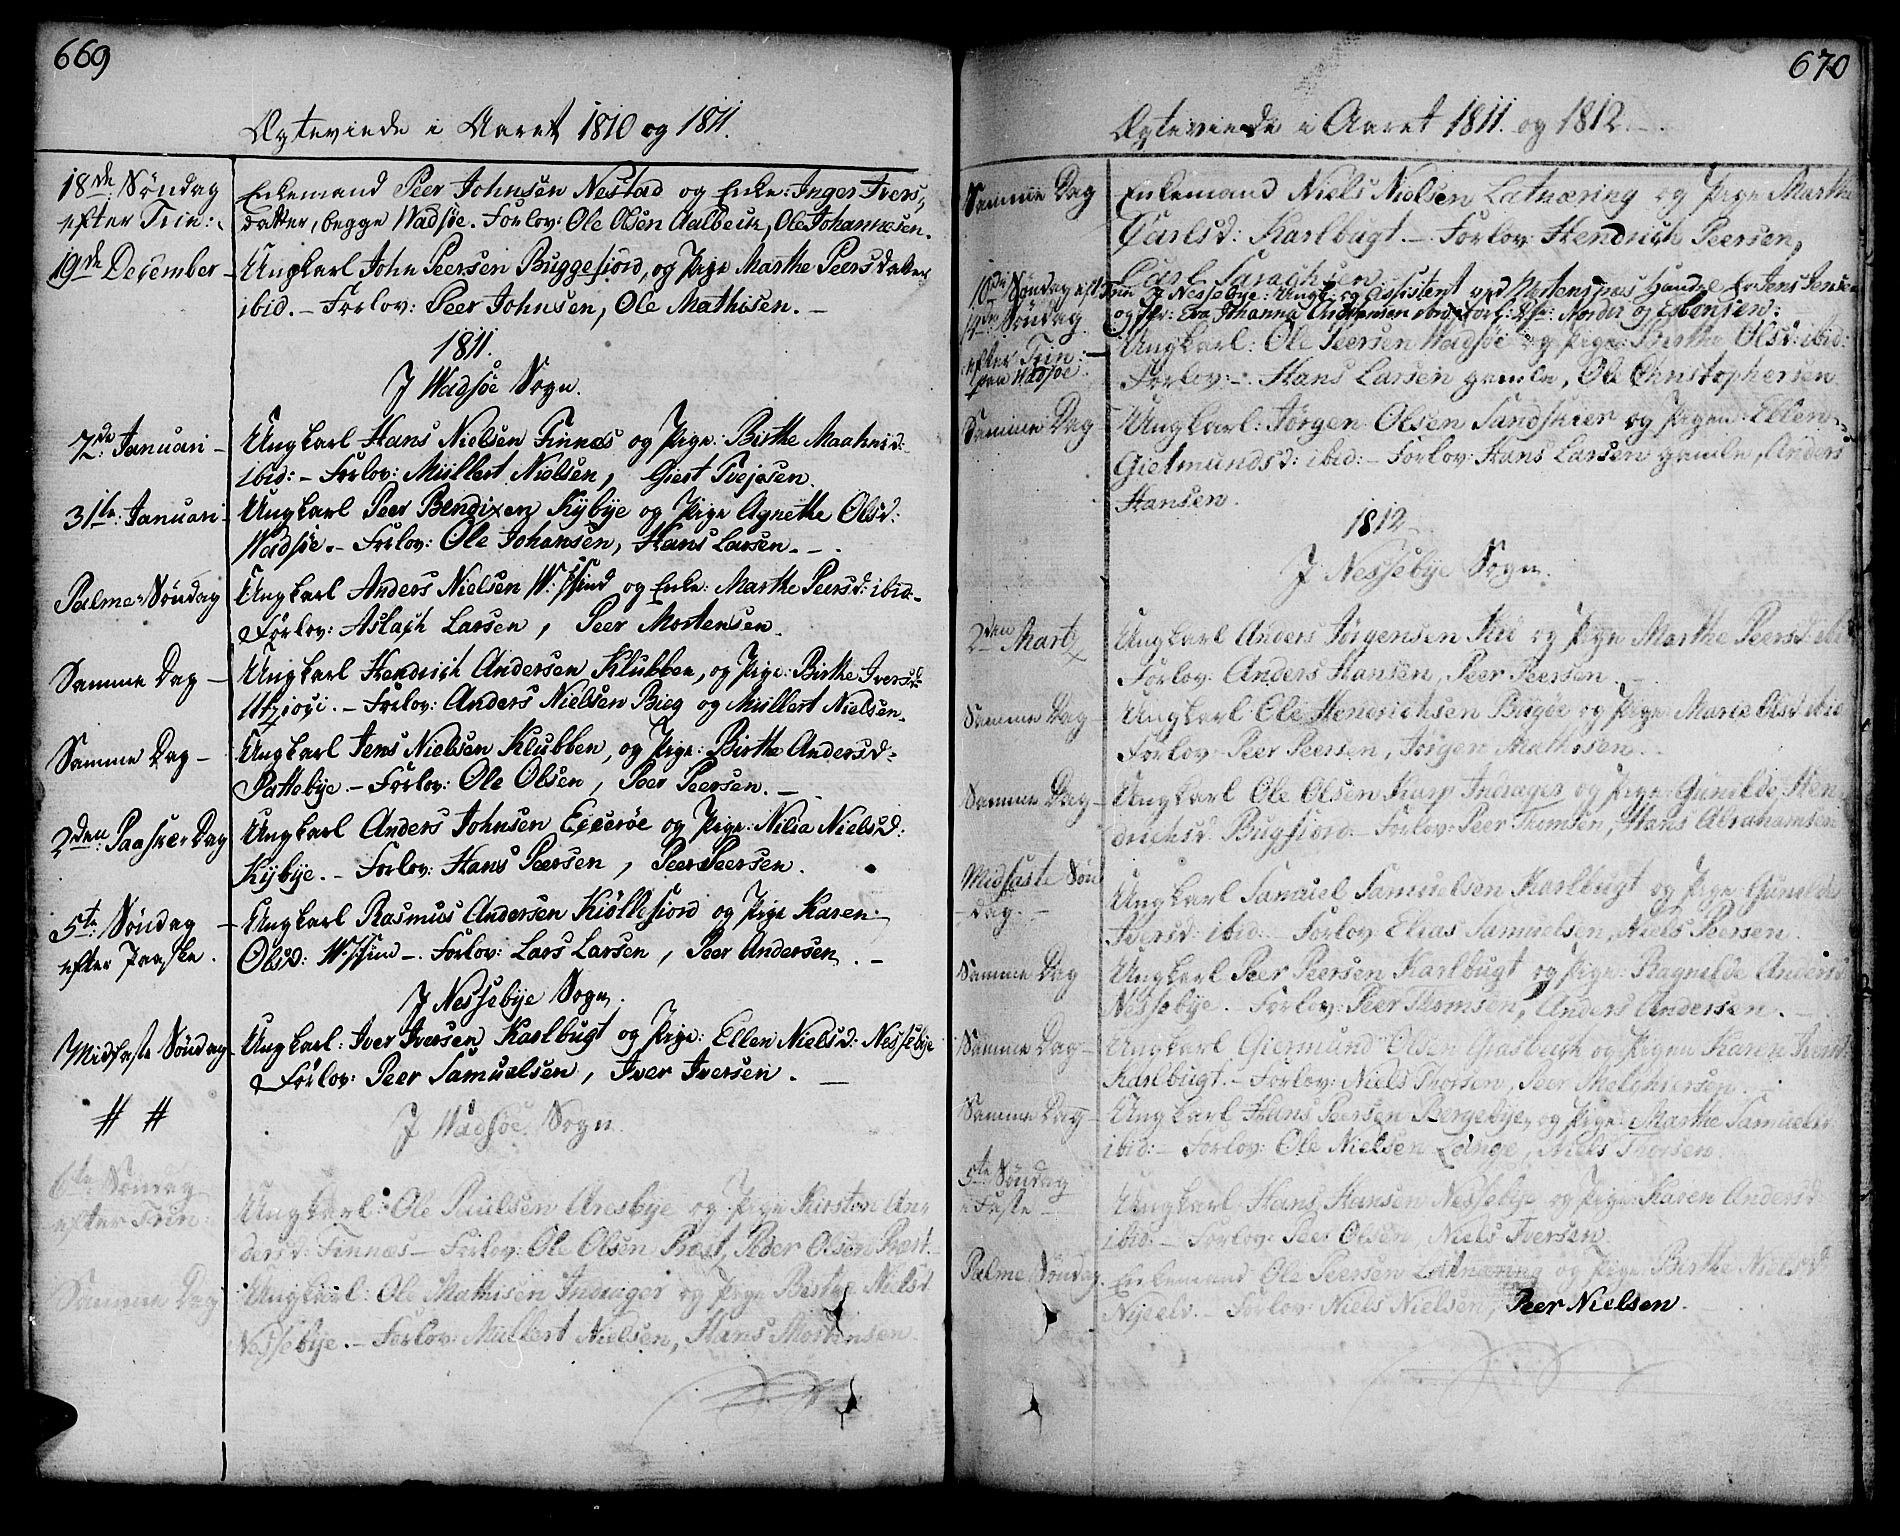 669
Ægteviede i Aaret 1810 og 1811.
18de Søndag Enkemand Peer Johnsen Nestad og Enke: Inger Ivers
efter Trin: datter, begge Wadsøe. Forlov: Ole Olsen Aalbech, Ole Johannesen.
19de December – Ungkarl John Peersen Buggefiord, og Pige Marthe Peersdatter
ibid. – Forlov: Peer Johnsen, Ole Mathisen. –
1811.
I Wadsøe Sogn.
7de Januari – Ungkarl Hans Nielsen Finnæs og Pige: Birthe
ibid: – Forlov: Müllert Nielsen, Giert
31te Januari – Ungkarl Peer Bendixen Kybye og Pige Agnethe Olsd:
Wadsøe. – Forlov: Ole Johansen, Hans Larsen. –
Palme-Søndag Ungkarl Anders Nielsen og Enke: Marthe Peersd: ibid –
Forlov: Aslach Larsen, Peer Mortensen.
Samme Dag – Ungkarl Hendrich Andersen Klubben, og Pige: Birthe Iversd:
– Forlov: Anders Nielsen Bieg og Müllert Nielsen.
Samme Dag – Ungkarl Jens Nielsen Klubben, og Pige: Birthe Andersd:
Pattebye. – Forlov: Ole Olsen, Peer Peersen. –
2den Paaske-Dag Ungkarl Anders Johnsen Eccerøe og Pige: Nilia Nielsd:
Kybye. – Forlov: Hans Peersen, Peer Peersen.
5te Søndag – Ungkarl Rasmus Andersen Kiøllefiord og Pige Karen
efter Paaske. Olsd: – Forlov: Lars Larsen, Peer Andersen. –
I Nessebye Sogn.
Midfaste Søndag – Ungkarl: Iver Iversen Karlbugt og Pige: Ellen Nielsd: Nessebye
Forlov: Peer Samuelsen, Iver Iversen. –
# # I Wadsøe Sogn.
6te Søndag
efter Trin: Ungkarl: Ole Paulsen Aresbye og Pige Kirsten An
dersd: Finnæs – Forlov: Ole Olsen Præst, Peder Olsen Præst. –
Samme Dag Ungkarl: Ole Mathisen Indrager og Pige Nielsd
Nessebye. – Forlov: Müllert Nielsen, Hans Mortensen.
670
Ægteviede i Aaret 1811. og 1812. –
Samme Dag Enkemand Niels Nielsen Latnæring og Pige Marthe
Carlsd: Karlbugt. – Forlov: Hendrich Peersen,
Carl
10de Søndag eft Trin I Nessebye: Ungk: og Assistent ved Mortensnæs Handel Hr Jens Jensen
og Jfr: Eva Johanna Andersen ibid Forl: Hr: Norder og Esbensen:
12de Søndag
efter Trin: – Ungkarl: Ole Peersen Wadsøe og Pige: Birthe Olsd: ibid:
paa Wadsøe. Forlov: – Hans Larsen gamle, Ole Christophersen
Samme Dag Ungkarl: Jørgen Olsen Sandskier og Pigen: Ellen
Gietmundsd: ibid: – Forlov: Hans Larsen gamle, Anders
Hansen.
1812
I Nessebye Sogn.
2den Martz Ungkarl Anders Jørgensen og Pige Marthe Peersd: ibid
Forlov: Anders Hansen, Peer Peersen. –
Samme Dag – Ungkarl Ole Hendrichsen Bugøe og Pige: Maren Olsd ibid
Forlov: Peer Peersen, Jørgen Mathisen.
Samme Dag – Ungkarl Ole Olsen Karp Indrager og Pige: Gunilde Hen
drichsd Bugfiord. – Forlov: Peer Thomsen, Hans Abrahamsen
Midfaste Søn
dag. – Ungkarl Samuel Samuelsen Karlbugt og Pige: Gunilde
Iversd: ibid. – Forlov Elias Samuelsen, Niels Peersen.
Samme Dag Ungkarl Peer Peersen Karlbugt og Pige: Ragnilde Andersd
Nessebye. – Forlov: Peer Thomsen, Anders Andersen. –
Samme Dag – Ungkarl Giermund Olsen Grasbach og Pigen Karen Iversd:
Karlbugt. – Forlov: Niels Thorsen, Peer Melchiersen.
Samme Dag – Ungkarl Hans Peersen Bergebye, og Pige: Marthe Samuelsd
ibid: – Forlov: Ole Nielsen Lange, Niels Thorsen.
5te Søndag
i Faste – Ungkarl Hans Hansen Nessebye og Pige: Karen Andersd
ibid. – Forlov: Peer Olsen, Niels Iversen.
Palme Søndag. Enkemand Ole Peersen Latnæring og Pige: Birthe Nielsd
– Forlov: Niels Nielsen, Peer Nielsen.